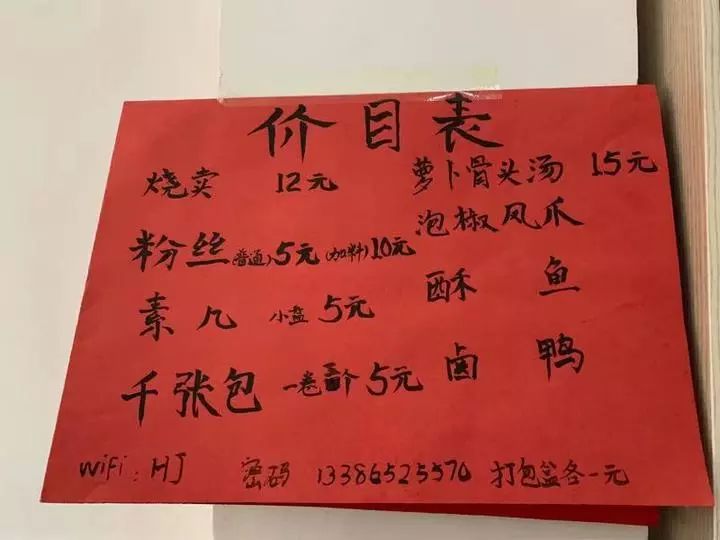 价目表
烧卖 12元 萝卜骨头汤 15元
泡椒凤爪
粉丝(普通)5元(加料)10元
酥 鱼
素几 小盘 5元
卤 鸭
千张包 一卷 个 5元
WiFi:HJ 密码 13386525570 打包盆各一元